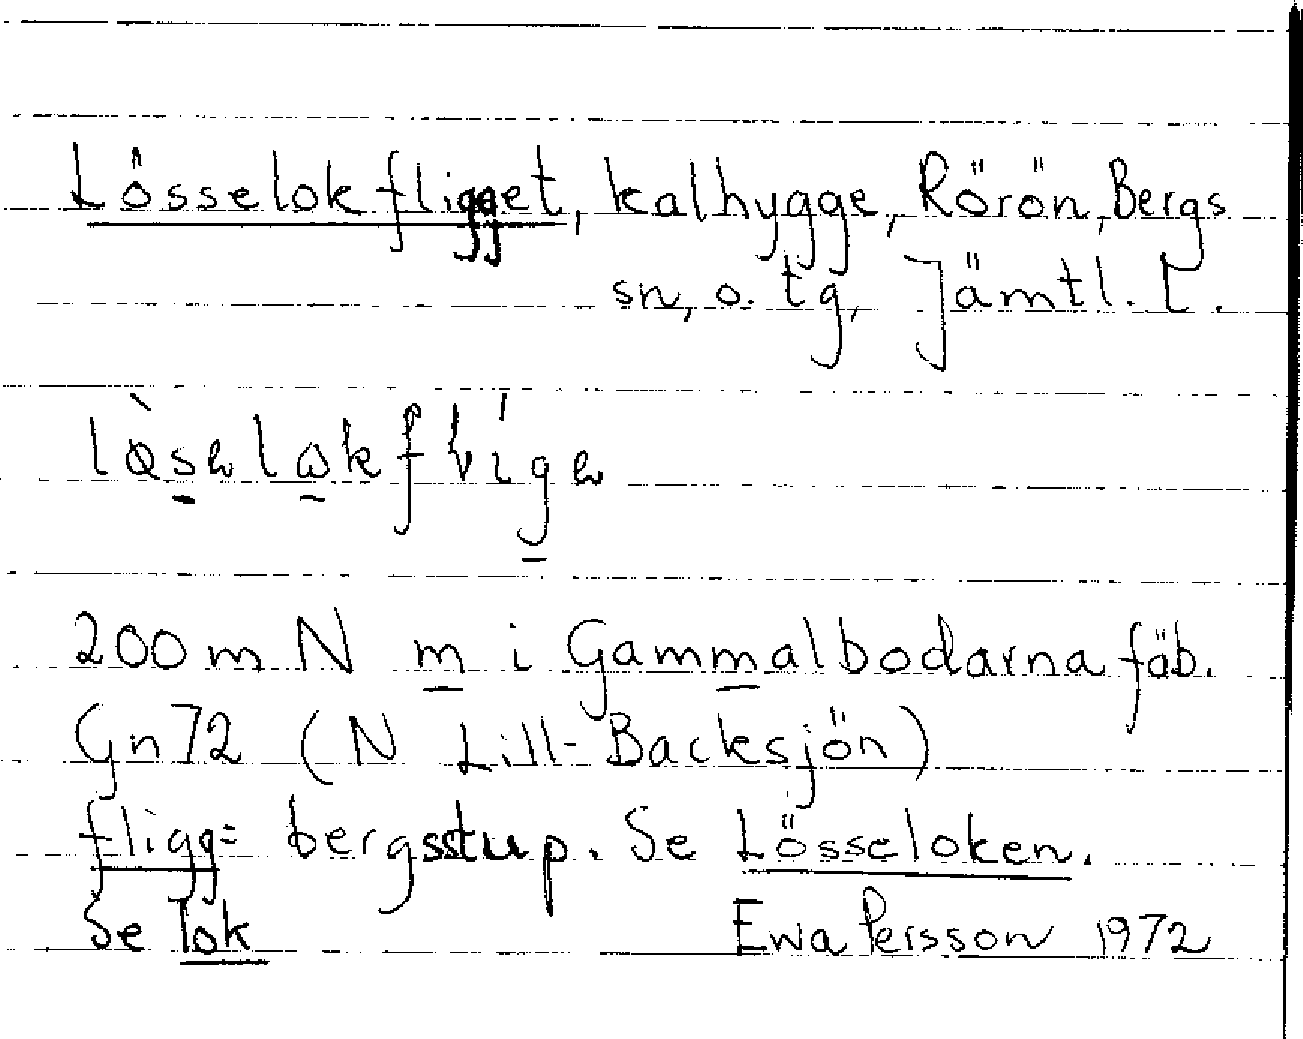 Lösselokfligget, kalhygge, Rörön, Bergs
sn, o. tg, Jämtl. l.
200 m N m i Gammalbodarna fäb.
Gn72 (N Lill-Backsjön)
fligg= bergsstup. Se Lösseloken.
Se lok
Ewa Persson 1972